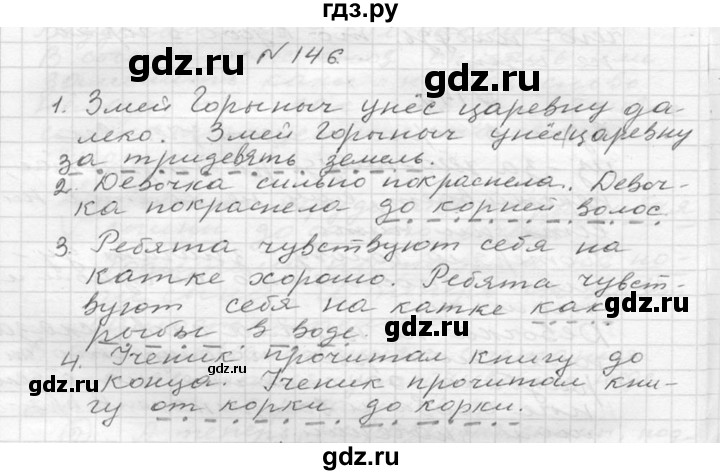 гдз.ру
№ 146.
1. Змей Горыныч унёс царевну да-
леко. Змей Горыныч унёс царевну
за тридевять земель.
2. Девочка сильно покраснела. Девоч-
ка покраснела до корней волос.
3. Ребята чувствуют себя на
катке хорошо. Ребята чувст-
вуют себя на катке как
рыбы в воде.
4. Ученик прочитал книгу до
конца. Ученик прочитал кни-
гу от корки до корки.
gdz.ru
gdz.ru
gdz.ru
gdz.ru
gdz.ru
gdz.ru
гдз.ру